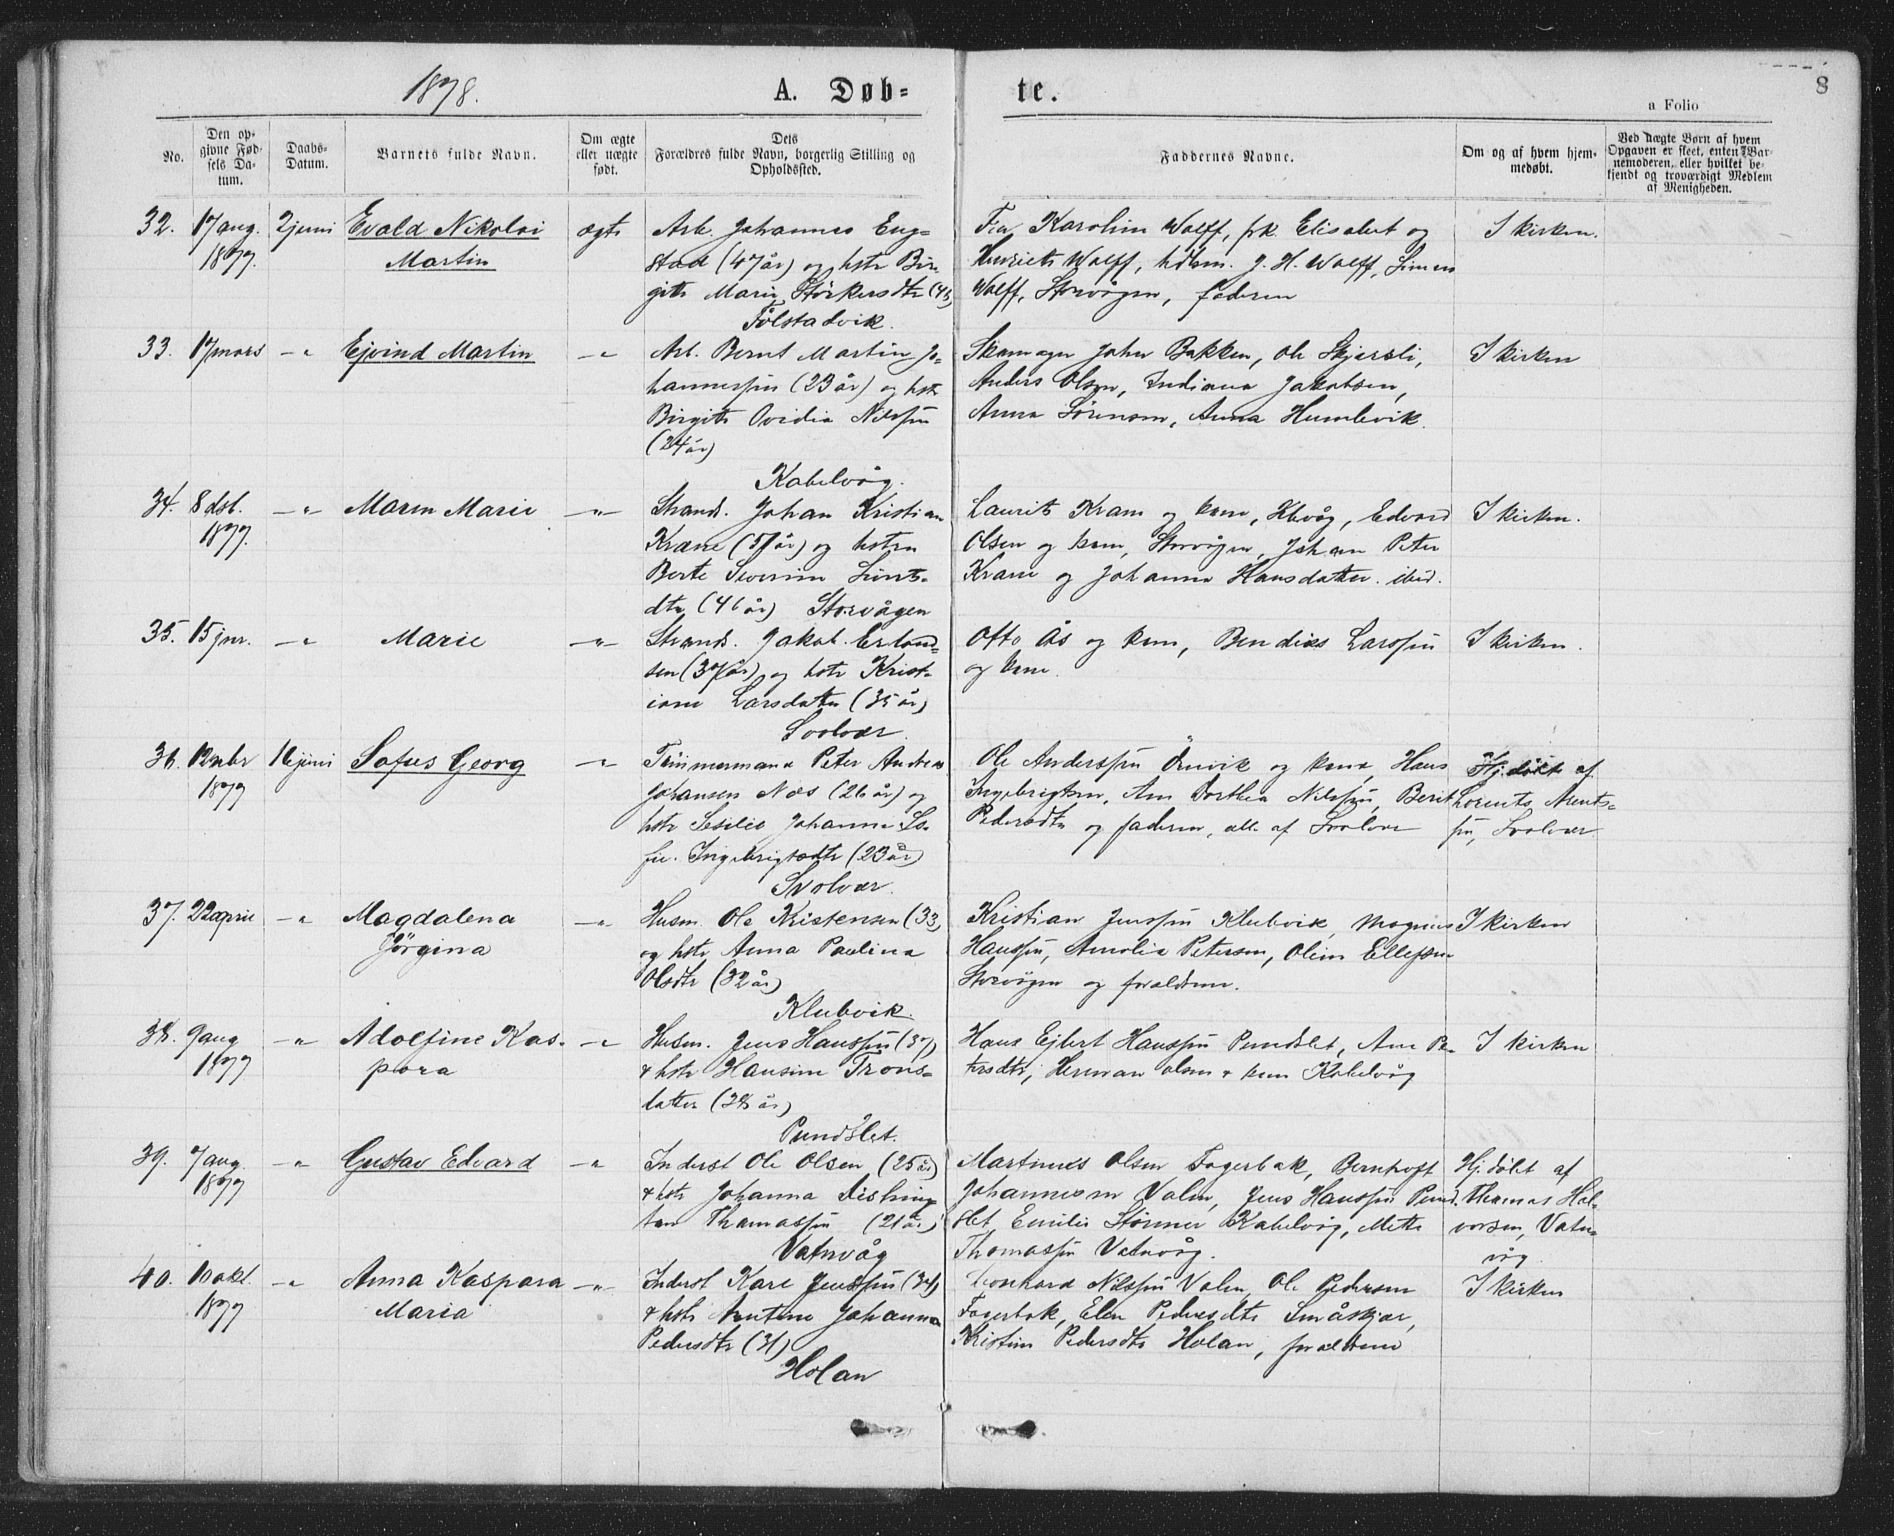 1878.
A. Døb-
te.
8
a Folio
No.
Den op-
givne Fød-
sels Da-
tum.
Daabs-
Datum.
Barnets fulde Navn.
Om ægte
eller uægte
født.
Dets
Forældres fulde Navn, borgerlig Stilling og
Opholdssted.
Faddernes Navne.
Om og af hvem hjem-
medøbt.
Ved uægte Børn af hvem
Opgaven er skeet, enten Bar-
nemoderen, eller hvilket be-
kjendt og troværdigt Medlem
af Menigheden.
32. 17 aug. 1877. 2 juni Evald Nikolai
Martin
ægte
Arb. Johannes Eng-
stad (47 år) og hstr Bir-
gitte Marie Størkersdtr
Følstadvik.
Fru Karoline Wolff, frk. Elisabet og
Henriette Wolff, hdlsm. J. H. Wolff, Simon
Wolff, Storvågen, faderen
I kirken.
33. 17 mars - " Ejvind Martin - "
Arb. Bernt Martin Jo-
hannessen (23 år) og hstr
Birgitte Ovidia Nilssen
(24 år)
Kabelvåg.
Skomager Johan Bakken, Ole Skjærsli,
Anders Olsen, Indiana Jakobsen,
Anna Sørensen, Anna Humlevik.
I kirken
34. 8 dsb. 1877. - " Maren Marie - "
Strands. Johan Kristian
Krane (51 år) og hstru
Berte Severine
dtr (46 år) Storvågen
Laurits Krane og kone, Kbvåg, Edvard
Olsen og kone, Storvågen, Johan Peter
Krane og Johanna Hansdatter. ibid.
I kirken.
35. 15 jnr. - " Marie - "
Strands. Jakob Erland-
sen (37 år) og hstr Krist-
iane Larsdatter (35 år)
Svolvær.
Otto Ås og kone, Bendiks Larssen
og kone.
I kirken.
36. 12 nbr 1877 16 juni Sofus Georg - "
Tømmermand Peter Andreas
Johansen Næs (26 år) og
hstr Sesilie Johanna So-
fie. Ingebrigtsdtr (23 år)
Svolvær.
Ole Anderssen Ørnvik og kone, Hans
Ingebrigtsen, Ane Dorthea Nilssen, Berit
Pedersdtr og faderen, alle af Svolvær
Hj.døbt af
Lorents Arents-
sen, Svolvær.
37. 22 april - " Magdalena
Jørgina
- "
Husm. Ole Kristensen (33)
og hstr Anna Paulina
Olsdtr (32 år)
Klubvik.
Kristian Jenssen Klubvik, Magnus
Hanssen, Amalia Petersen, Oline Ellefsen
Storvågen og forældrene.
I kirken
38. 9 aug 1877 - " Adolfine Kas-
para
- "
Husm. Jens Hanssen (37)
& hstr Hansine Trons-
datter (38 år)
Pundslet.
Hans Ejlert Hanssen Pundslet, Ane Pe-
tersdtr, Herman Olsen & kone Kabelvåg
I kirken
39. 7 aug 1877 - " Gustav Edvard - "
Inderst Ole Olsen, (25 år)
& hstr Johanna
Thomassen (21 år)
Vatnvåg
Martinus Olsen Fagerbak, Berntoft
Johannesen Valen, Jens Hanssen Pund-
slet, Emilie Størmer Kabelvåg, Mette
Thomassen Vatnvåg.
Hj.døbt af
Thomas Hal-
vorsen, Vatn-
våg
40. 10 okt. 1877 - " Anna Kaspara
Maria
- "
Inderst Kare Jenssen (34)
& hstr Arntine Johanna
Pedersdtr (31)
Holan
Leonhard Nilssen Valen, Ole Pedersen
Fagerbak, Elen Pedersdtr Småskjær,
Kristine Pedersdtr Holan, forældrene
I kirken